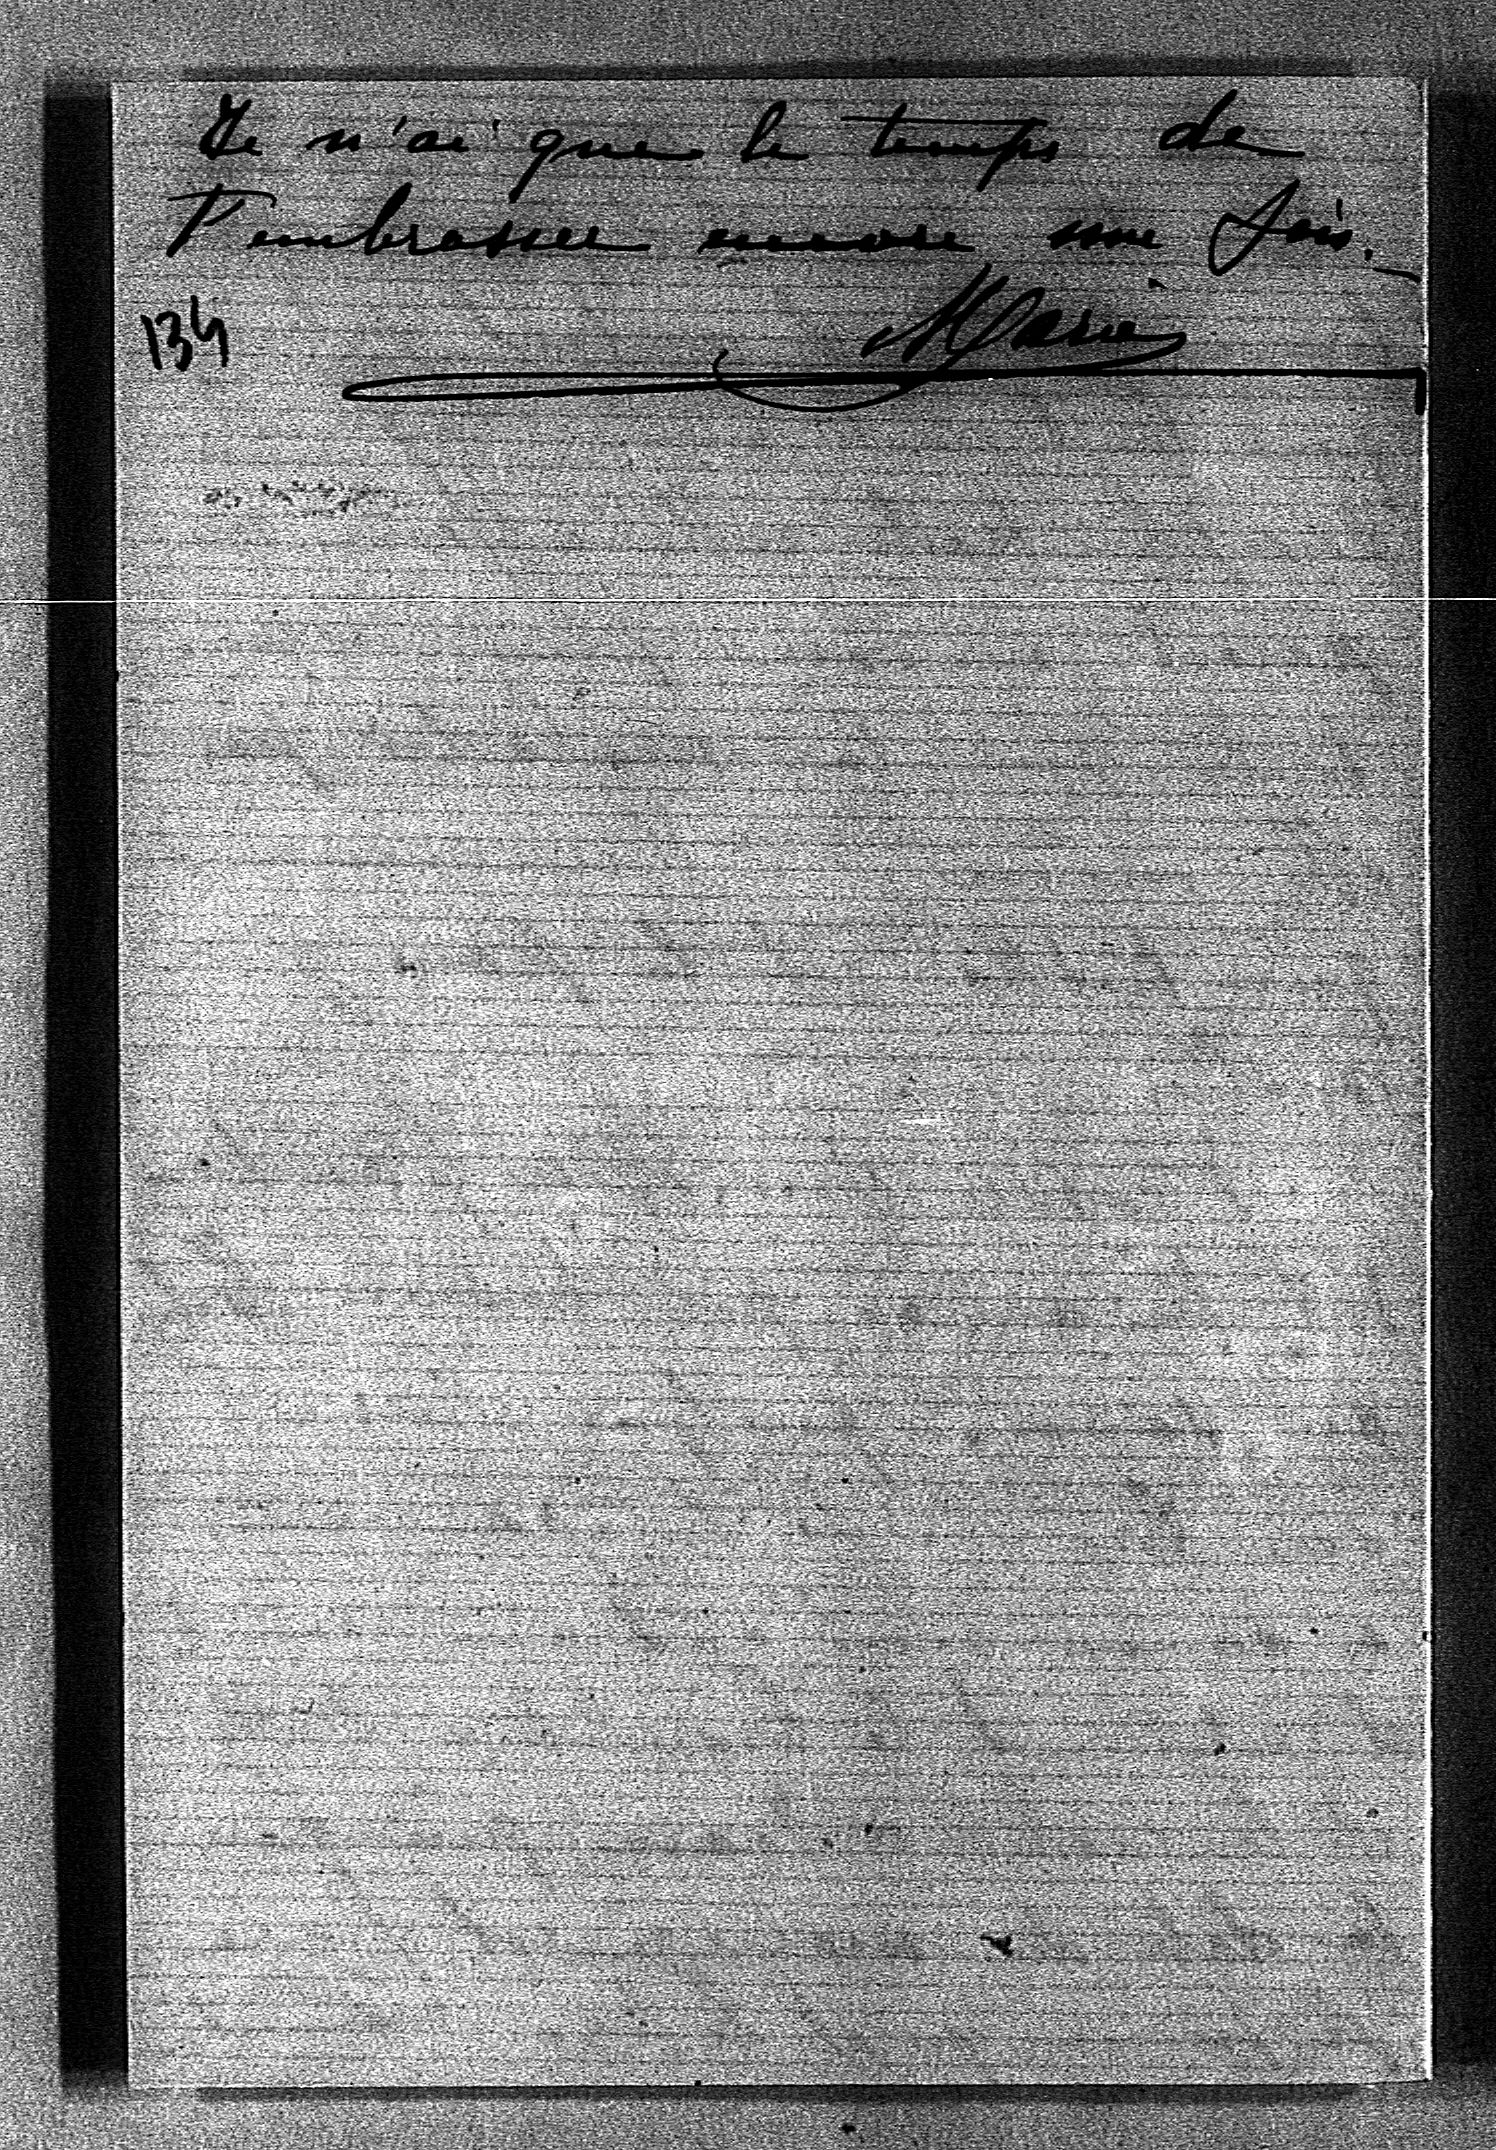 Je n'ai que le temps de
t'embrasser encore une fois._
Marie
134